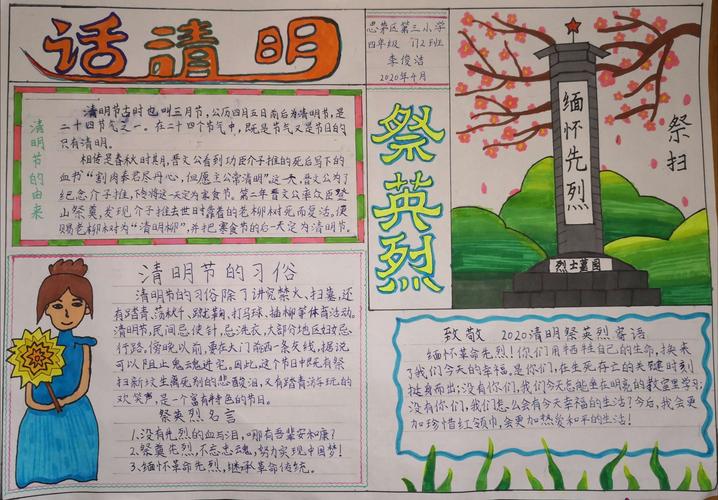 话清明
思茅区第三小学
四年级 112班
李俊洁
2020年4月
清明节的由来
清明节古时也叫三月节，公历四月五日前后为清明节，是
二十四节气之一。在二十四个节气中，既是节气又是节日的
只有清明。
相传是春秋时其月，晋文公看到功臣介子推的死后写下的
血书“割肉奉君尽丹心，但愿主公常清明”，这一天，晋文公为了
纪念介子推，下令将这一天定为寒食节。第二年晋文公率众臣登
山祭奠，发现介子推去世时靠着的老柳树死而复活，便
赐老柳树为“清明柳”，并把寒食节的后一天定为清明节。
祭英烈
缅怀先烈
祭扫
烈士墓园
清明节的习俗
清明节的习俗除了讲究禁火、扫墓，还
有踏青、荡秋千、蹴鞠、打马球、插柳等体育活动。
清明节，民间忌使针，忌洗衣，大部分地区妇女忌
行路。傍晚以前，要在大门前洒一条灰线，据说
可以阻止鬼魂进宅。因此，这个节日中既有祭
扫新坟生离死别的悲酸泪，又有踏青游玩的
欢笑声，是一个富有特色的节日。
祭英烈名言
1.没有先烈的血与泪，哪有吾辈安和康？
2.祭奠先烈，不忘忠魂，努力实现中国梦！
3.缅怀革命先烈，继承革命传统。
致敬 2020清明祭英烈寄语
缅怀革命先烈！你们用牺牲自己的生命，换来
了我们今天的幸福，是你们，在生死存亡的关键时刻
挺身而出；没有你们，我们今天怎能坐在明亮的教室里学习；
没有你们，我们怎么会有今天幸福的生活？今后，我会更
加珍惜红领巾，会更加热爱和平的生活！